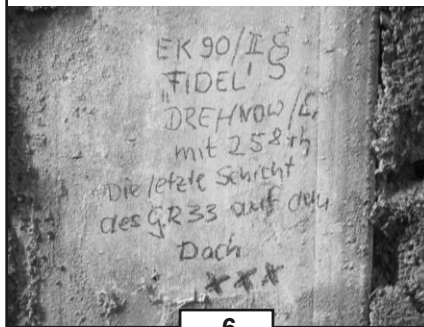 EK 90/II
"FIDEL"
DREHNOW/L.
mit 258 th
Die letzte Schicht
des G.R 33 auf dem
Dach
XXX
6